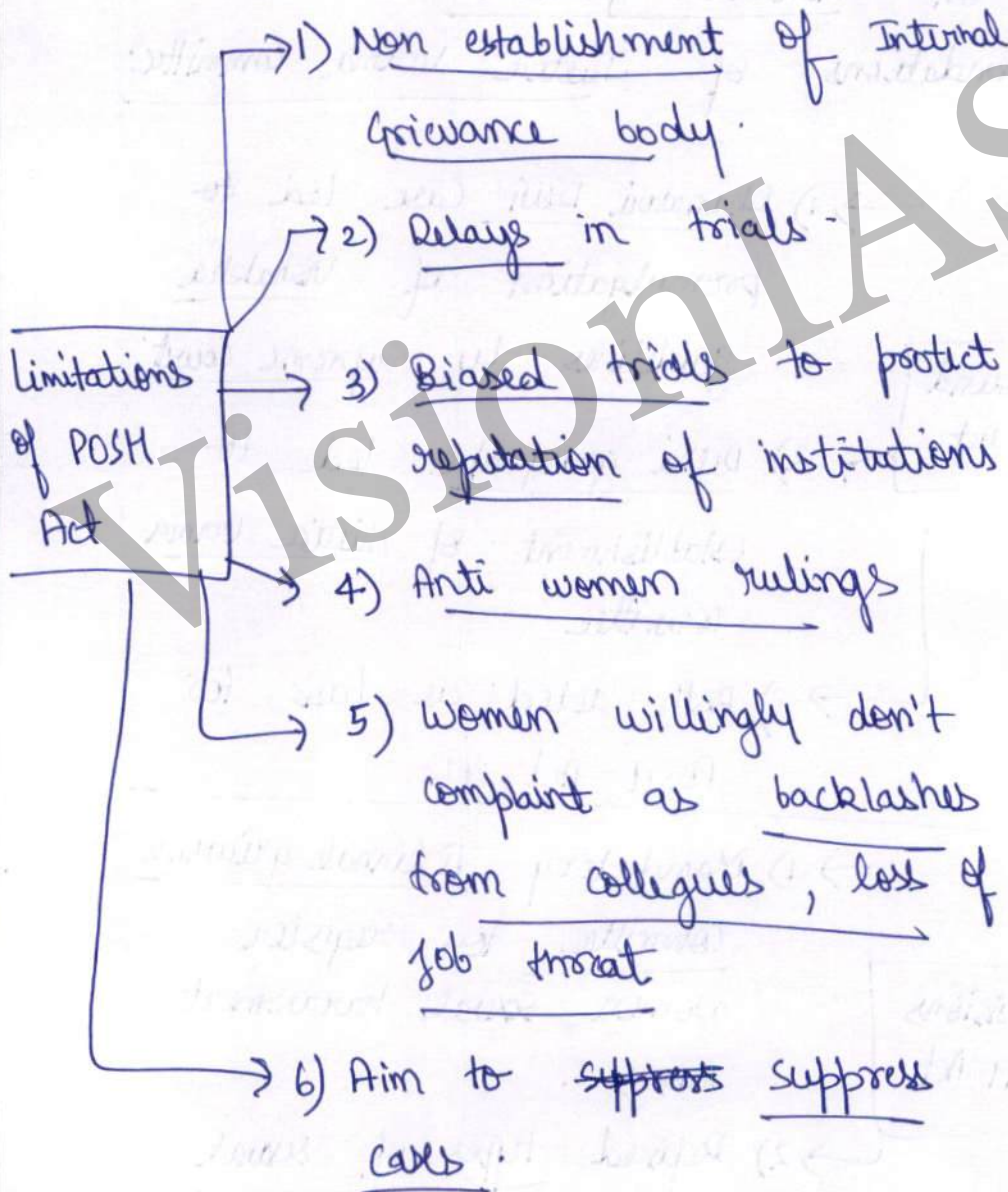 1) Non establishment of Internal
Grievance body.
2) Delays in trials.
Limitations
of POSH
Act
3) Biased trials to protect
reputation of institutions
4) Anti women rulings
5) women willingly don't
complaint as backlashes
from collegues, loss of
job threat
6) Aim to suppress suppress
cases.
VisionIAS